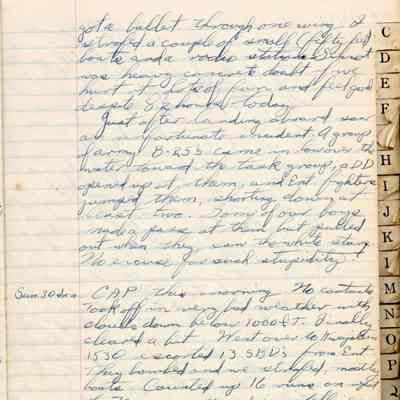 got a bullet through one wing. I
strafed a couple of small (fifty feet)
boats and a radio station
was heavy concrete doubt if we
hurt it lots of fun and feel good
despite 8.2 hours today.
Just after landing aboard saw
an unfortunate incident. A group
of army B-25s came in low over the
water toward the task group, a DD
opened up at them, and Ent fighters
jumped them, shooting down at
least two. Some of our boys
made a pass at them but pulled
out when they saw the white stars.
No excuse for such stupidity!
Sun. 30
CAP this morning. No contacts
Took off in very bad weather with
clouds down below 1000 ft. Finally
cleared a bit. Went over to
1530 escorted 13 SBD's from Ent.
They bombed and we strafed, mostly
boats. Counted up 16 runs
C
D
E
F
H
I
J
K
L
M
N
O
P
Q